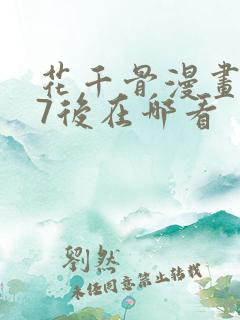 花千骨漫畫
7後在哪看
劉然
未经同意禁止转载